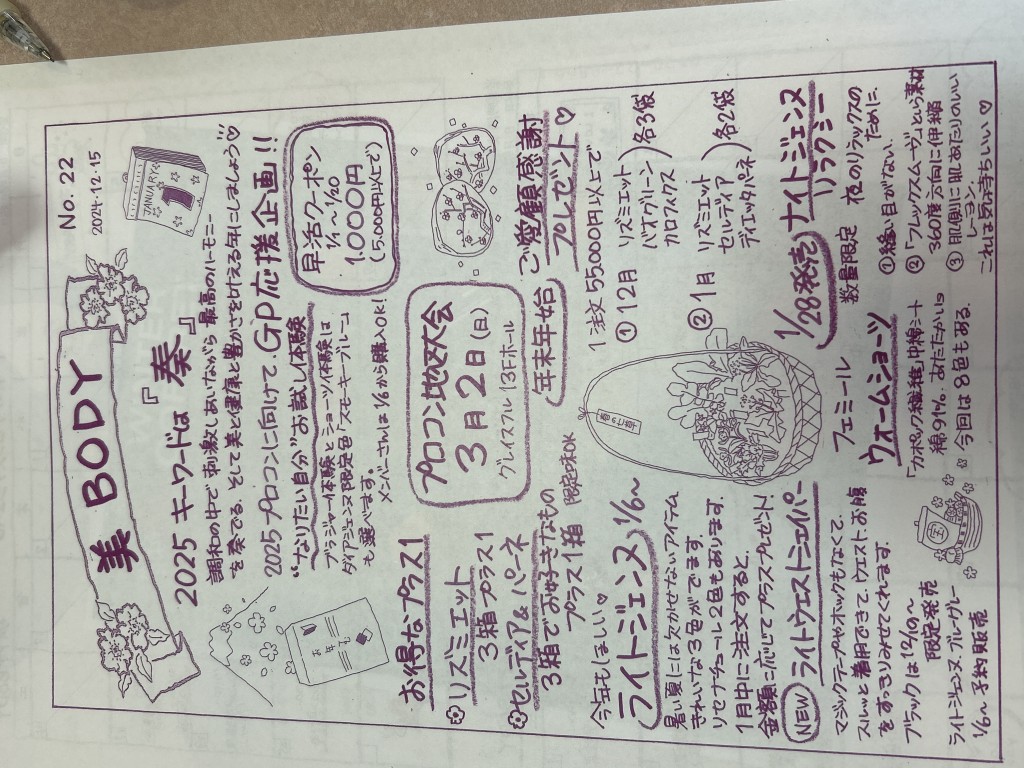 美 BODY
No. 22
2024.12.15
JANUARY
2025 キーワードは 『奏』
調和の中で 刺激しあいながら 最高のハーモニー
を奏でる。そして美と健康と豊かさを叶える年にしましょう♡
お年玉
2025 プロコンに向けて GP応援企画!!
"なりたい自分"お試し体験
ブラジャー体験とショーツ体験は
ダイアジェンヌ限定色「スモーキーブルー」
も選べます。
メンバーさんは 1/6から購入OK!
早活クーポン
1/1〜1/20
1,000円
(5,000円以上で)
お得なプラス1
リズミエット
3箱プラス1
セルディア&パネ
3箱でお好きなもの
プラス1箱 限定味OK
プロコン地区大会
3月2日(日)
グレイスフル 13Fホール
年末年始
ご愛顧感謝
プレゼント♡
1注文 55,000円以上で
① 12月
リズミエット
パスグリーン
カロフィクス
各3袋
② 1月
リズミエット
セルディア
ディエッタパネ
各2袋
今年もほしい♡
ライトジェンヌ 1/6〜
暑い夏には欠かせないアイテム
きれいな3色がでます
リセナチュール2色もあります。
1月中に注文すると、
金額に応じてプラスプレゼント!
NEW ライトウエストシェイパー
マジックテープやホックもなくて、
スルッと着用できて、ウエスト、お腹
をすっきりみせてくれます。
ブラックは 12/10〜
限定発売
ライトジェンヌ ブルーグレー
1/6〜 予約販売
宝
フェミニール
ウォームショーツ
「カポック繊維」中綿シート
綿91%. あたたかい♨
今回は 8色もある。
1/28発売 ナイトジェンヌ
リラクシー
数量限定 夜のリラックスの
ために、
① 縫い目がない、
② 「フレックスムーヴ」という素材
360度方向に伸縮
③ 肌側に肌あたりのいい
レーヨン。
これは気持ちいい♡